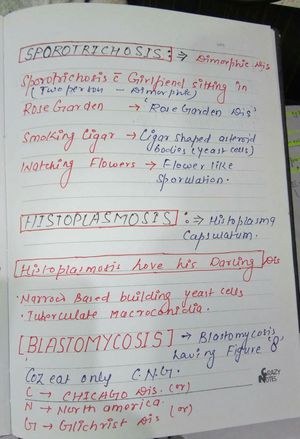 [SPOROTRICHOSIS] :⇒ Dimorphic Dis
Sporotrichosis c̄ Girlfriend sitting in
(Two person — Dimorphic)
Rose Garden → 'Rose Garden Dis'
Smoking Cigar → Cigar shaped asteroid
bodies (yeast cells)
Watching Flowers → Flower like
Sporulation.
[HISTOPLASMOSIS] :⇒ Histoplasma
Capsulatum.
[Histoplasmosis Love his Darling] Dis
• Narrow Based building yeast cells
• Tuberculate Macroconidia.
[BLASTOMYCOSIS] → Blastomycosis
having Figure '8'
Coz eat only C.N.G.
C → CHICAGO Dis. (or)
N → North america.
G → Gilchrist Dis (or)
CRAZY
NOTES